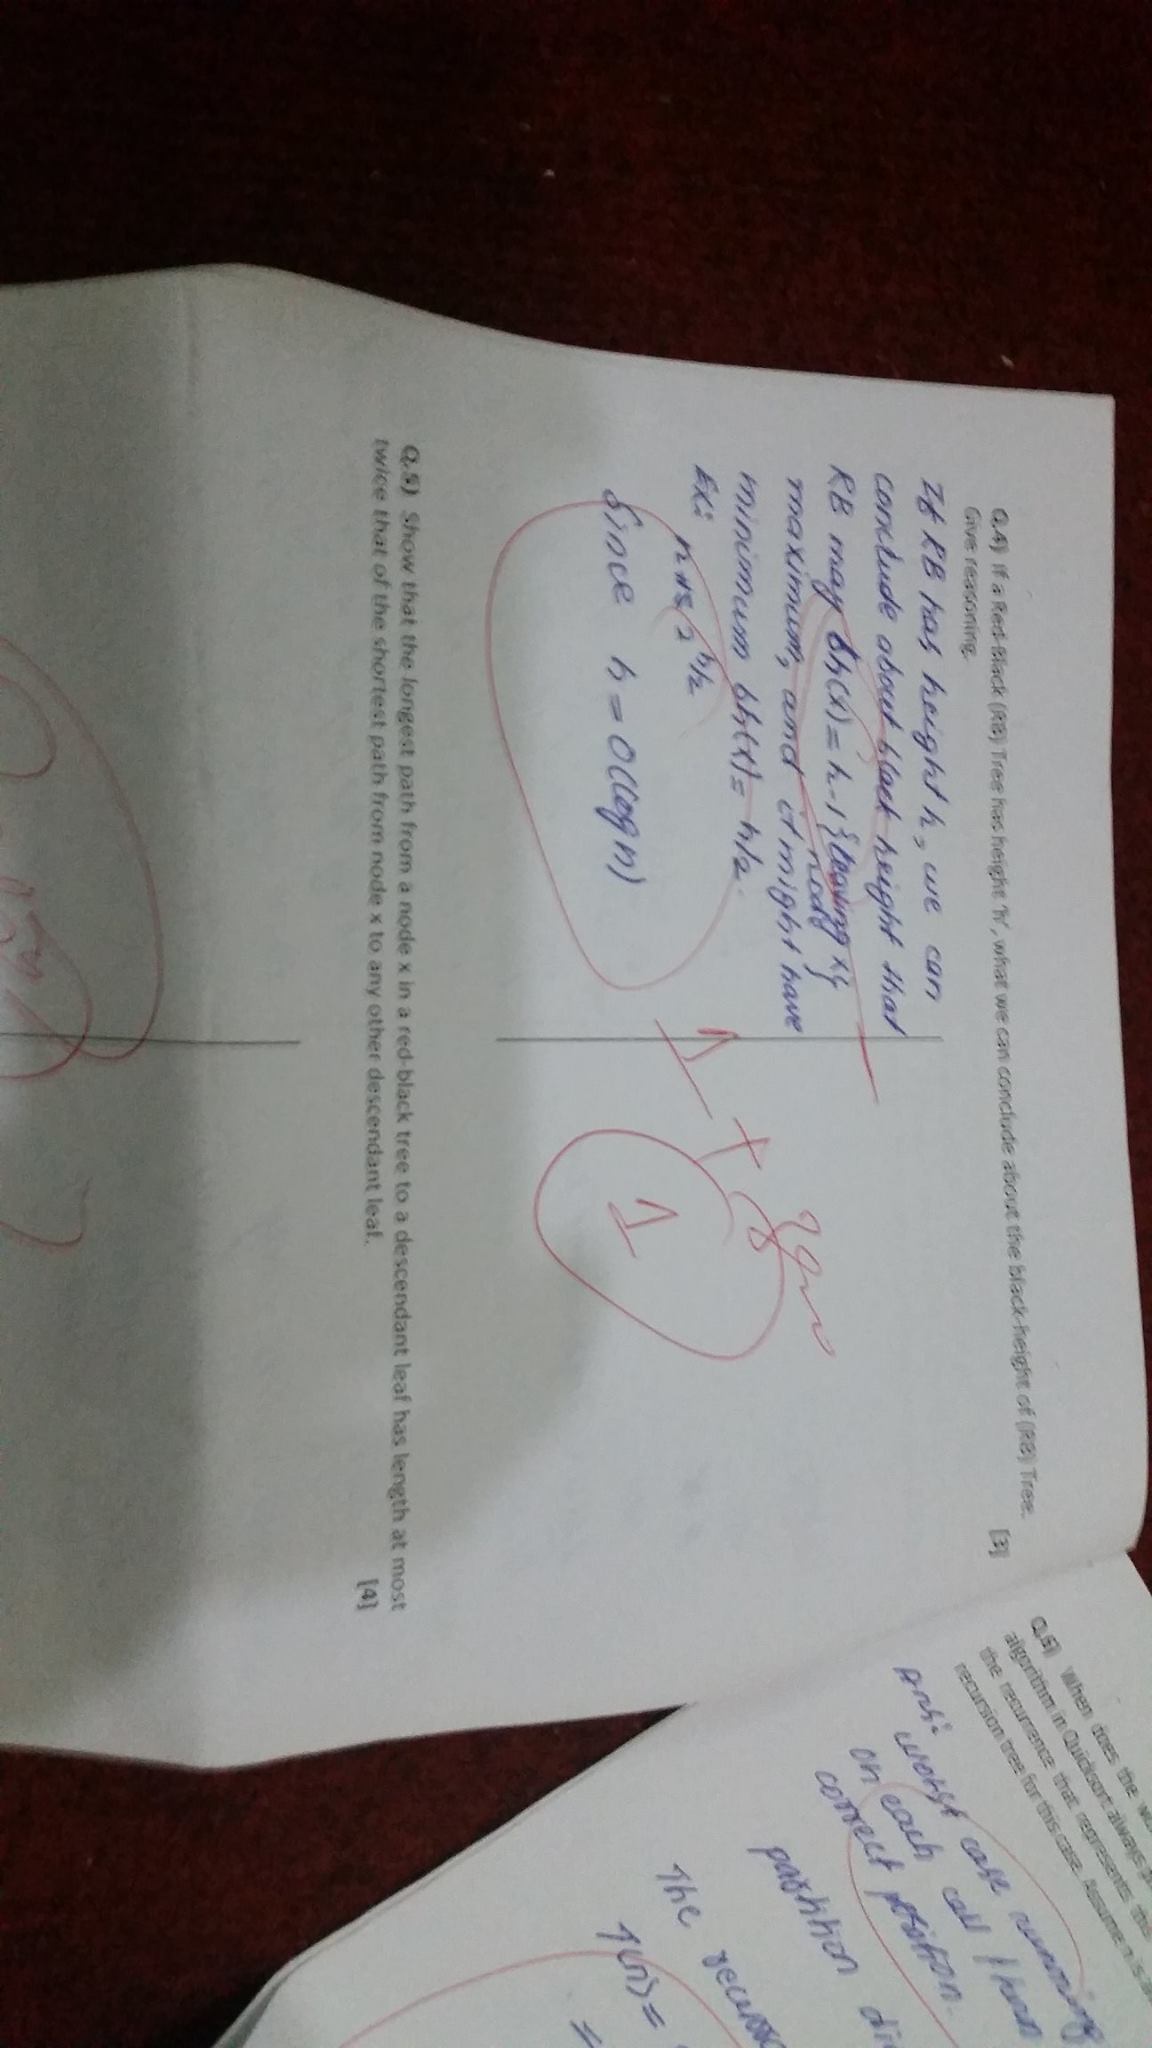 Q.4) If a Red-Black (RB) Tree has height 'h', what we can conclude about the black-height of (RB) Tree.
Give reasoning. [3]
If RB has height h, we can
conclude about black height that
RB may bh(x) = h-1 {leaving x}
node
maximum, and it might have
minimum bh(x) = h/2.
n+1 ≥ 2^h/2
Since h = O(log n)
1 +
1
Q.5) Show that the longest path from a node x in a red-black tree to a descendant leaf has length at most
twice that of the shortest path from node x to any other descendant leaf. [4]
Q.6) When does the
algorithm in Quicksort always
the recurrence that represents the
recursion tree for this case. Assume n is
Ans: worst case running
on each call
correct position.
partition
The
T(n) =
=